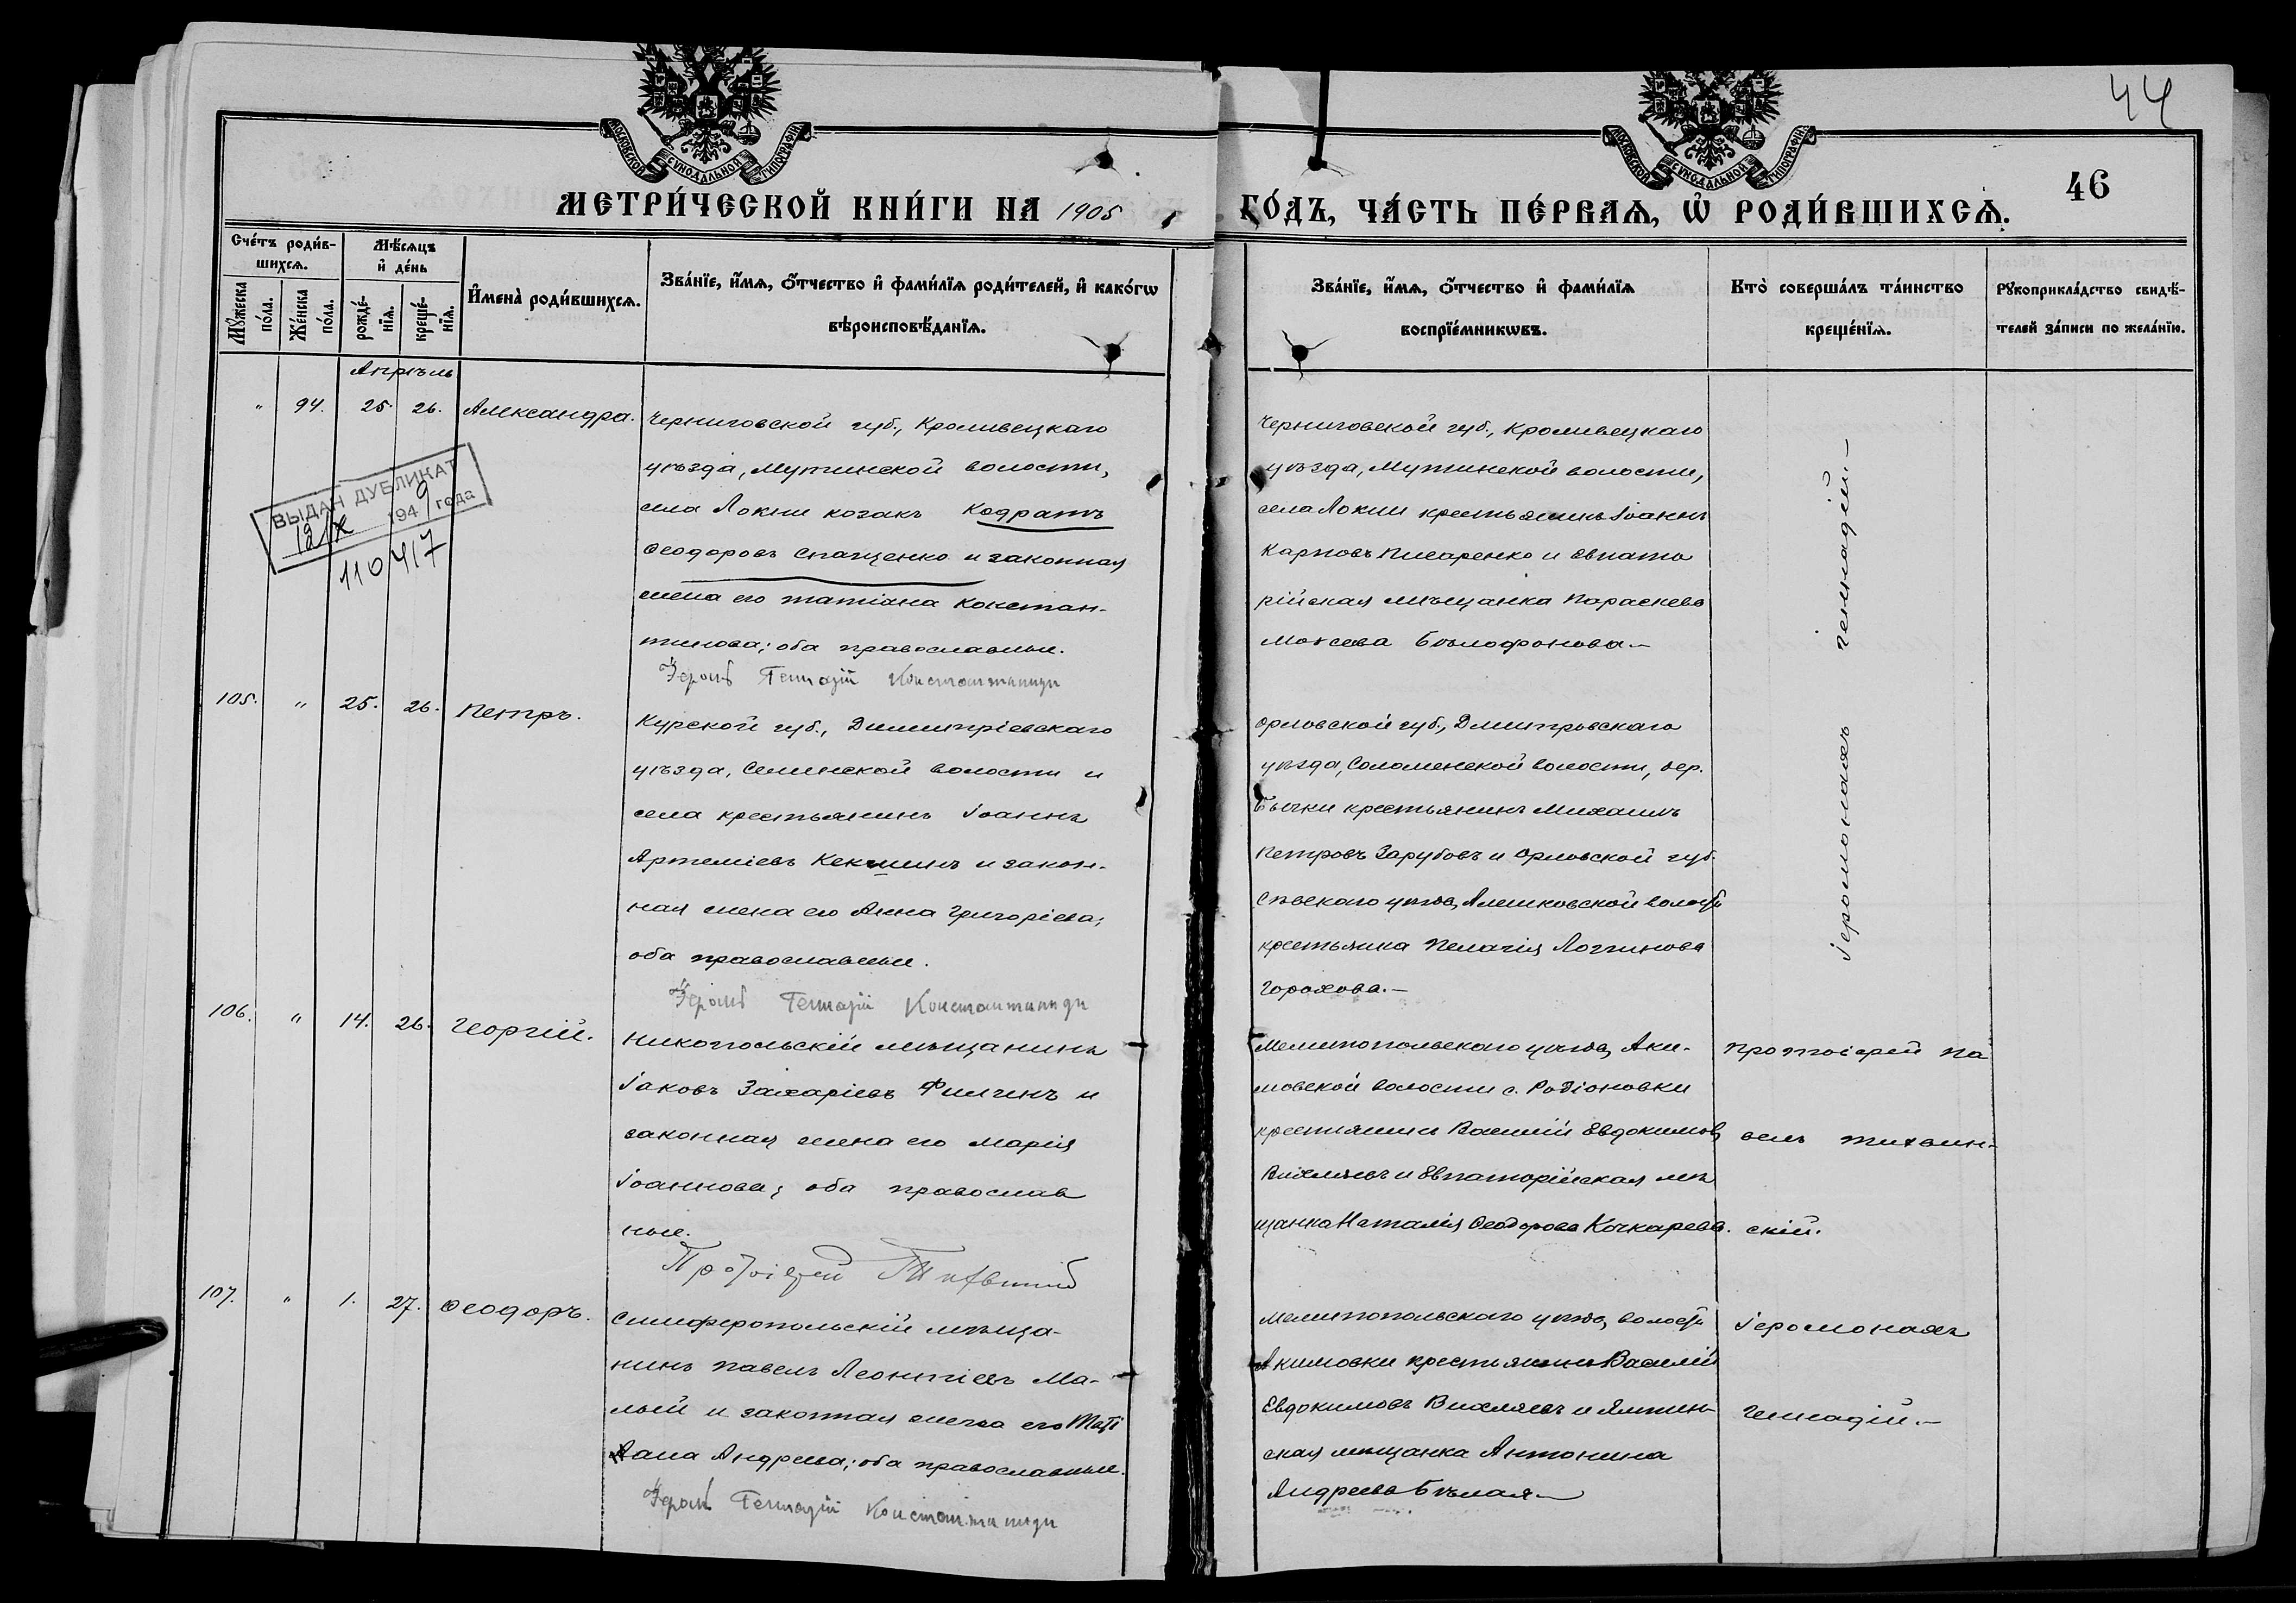 44
46
МОСКОВСКОЙ СУНОДАЛЬНОЙ ТИПОГРАФІИ
МОСКОВСКОЙ СУНОДАЛЬНОЙ ТИПОГРАФІИ
МЕТРИ́ЧЕСКОЙ КНИ́ГИ НА 1905
ГО́ДЪ, ЧА́СТЬ ПЕ́РВАѦ, Ѡ҆ РОДИ́ВШИХСѦ.
Сче́тъ роди́в-
шихсѧ.
Мѣ́сѧцъ
и҆ де́нь
Мꙋ́жеска
по́ла.
Же́нска
по́ла.
рожде́-
нїѧ.
креще́-
нїѧ.
И҆мена̀ роди́вшихсѧ.
Зва́нїе, и҆́мѧ, ѻ҆́тчество и҆ фами́лїѧ роди́телей, и҆ како́гѡ
вѣроисповѣ́данїѧ.
Зва́нїе, и҆́мѧ, ѻ҆́тчество и҆ фами́лїѧ
воспрїе́мникѡвъ.
Кто̀ соверша́лъ та́инство
креще́нїѧ.
Рꙋкоприкла́дство свидѣ́-
телей за́писи по жела́нїю.
Апрѣль
" 94. 25. 26. Александра.
Черниговской губ., Кролевецкаго
уѣзда, Мутинской волости,
села Локни козакъ Кодратъ
Ѳеодоровъ Спащенко и законная
жена его Татіана Констан-
тинова; оба православные.
Іером Геннадій Константиниди
Черниговской губ., Кролевецкаго
уѣзда, Мутинской волости,
села Локни крестьянинъ Іоаннъ
Карповъ Писаренко и Евпато
рійская мѣщанка Параскева
Моисева Бѣлофонова.—
Іеромонахъ Геннадій—
ВЫДАН ДУБЛИКАТ
12/X 1949 года
110417
105. " 25. 26. Петръ.
Курской губ., Димитріевскаго
уѣзда, Селинской волости и
села крестьянинъ Іоаннъ
Артеміевъ Кекшинъ и закон-
ная жена его Анна Григоріева;
оба православные.
Іером Геннадій Константиниди
Орловской губ., Дмитровскаго
уѣзда, Соломенской волости, дер.
Бычки крестьянинъ Михаилъ
Петровъ Зарубовъ и Орловской губ.
Сѣвскаго уѣзда, Алешковской волости
крестьянка Пелагія Логинова
Горохова.—
106. " 14. 26. Георгій.
Никопольскій мѣщанинъ
Іаковъ Захаріевъ Филгинъ и
законная жена его Марія
Іоаннова; оба православ
ные.
Протоіерей Тихвинскій
Мелитопольскаго уѣзда, Аки-
мовской волости с. Родіоновки
крестьянинъ Василій Евдокимовъ
Вихляевъ и Евпаторійская мѣ
щанка Наталія Ѳеодорова Кочкарева.
Протоіерей Па
велъ Тихвин-
скій.
107. " 1. 27. Ѳеодоръ.
Симферопольскій мѣща-
нинъ Павелъ Леонтіевъ Ма-
лый и законная жена его Таті
ана Андреева; оба православные.
Іером Геннадій Константиниди
Мелитопольскаго уѣзда, волости
Акимовки крестьянинъ Василій
Евдокимовъ Вихляевъ и Ялтин-
ская мѣщанка Антонина
Андреева Бѣлая—
Іеромонахъ
Геннадій.—